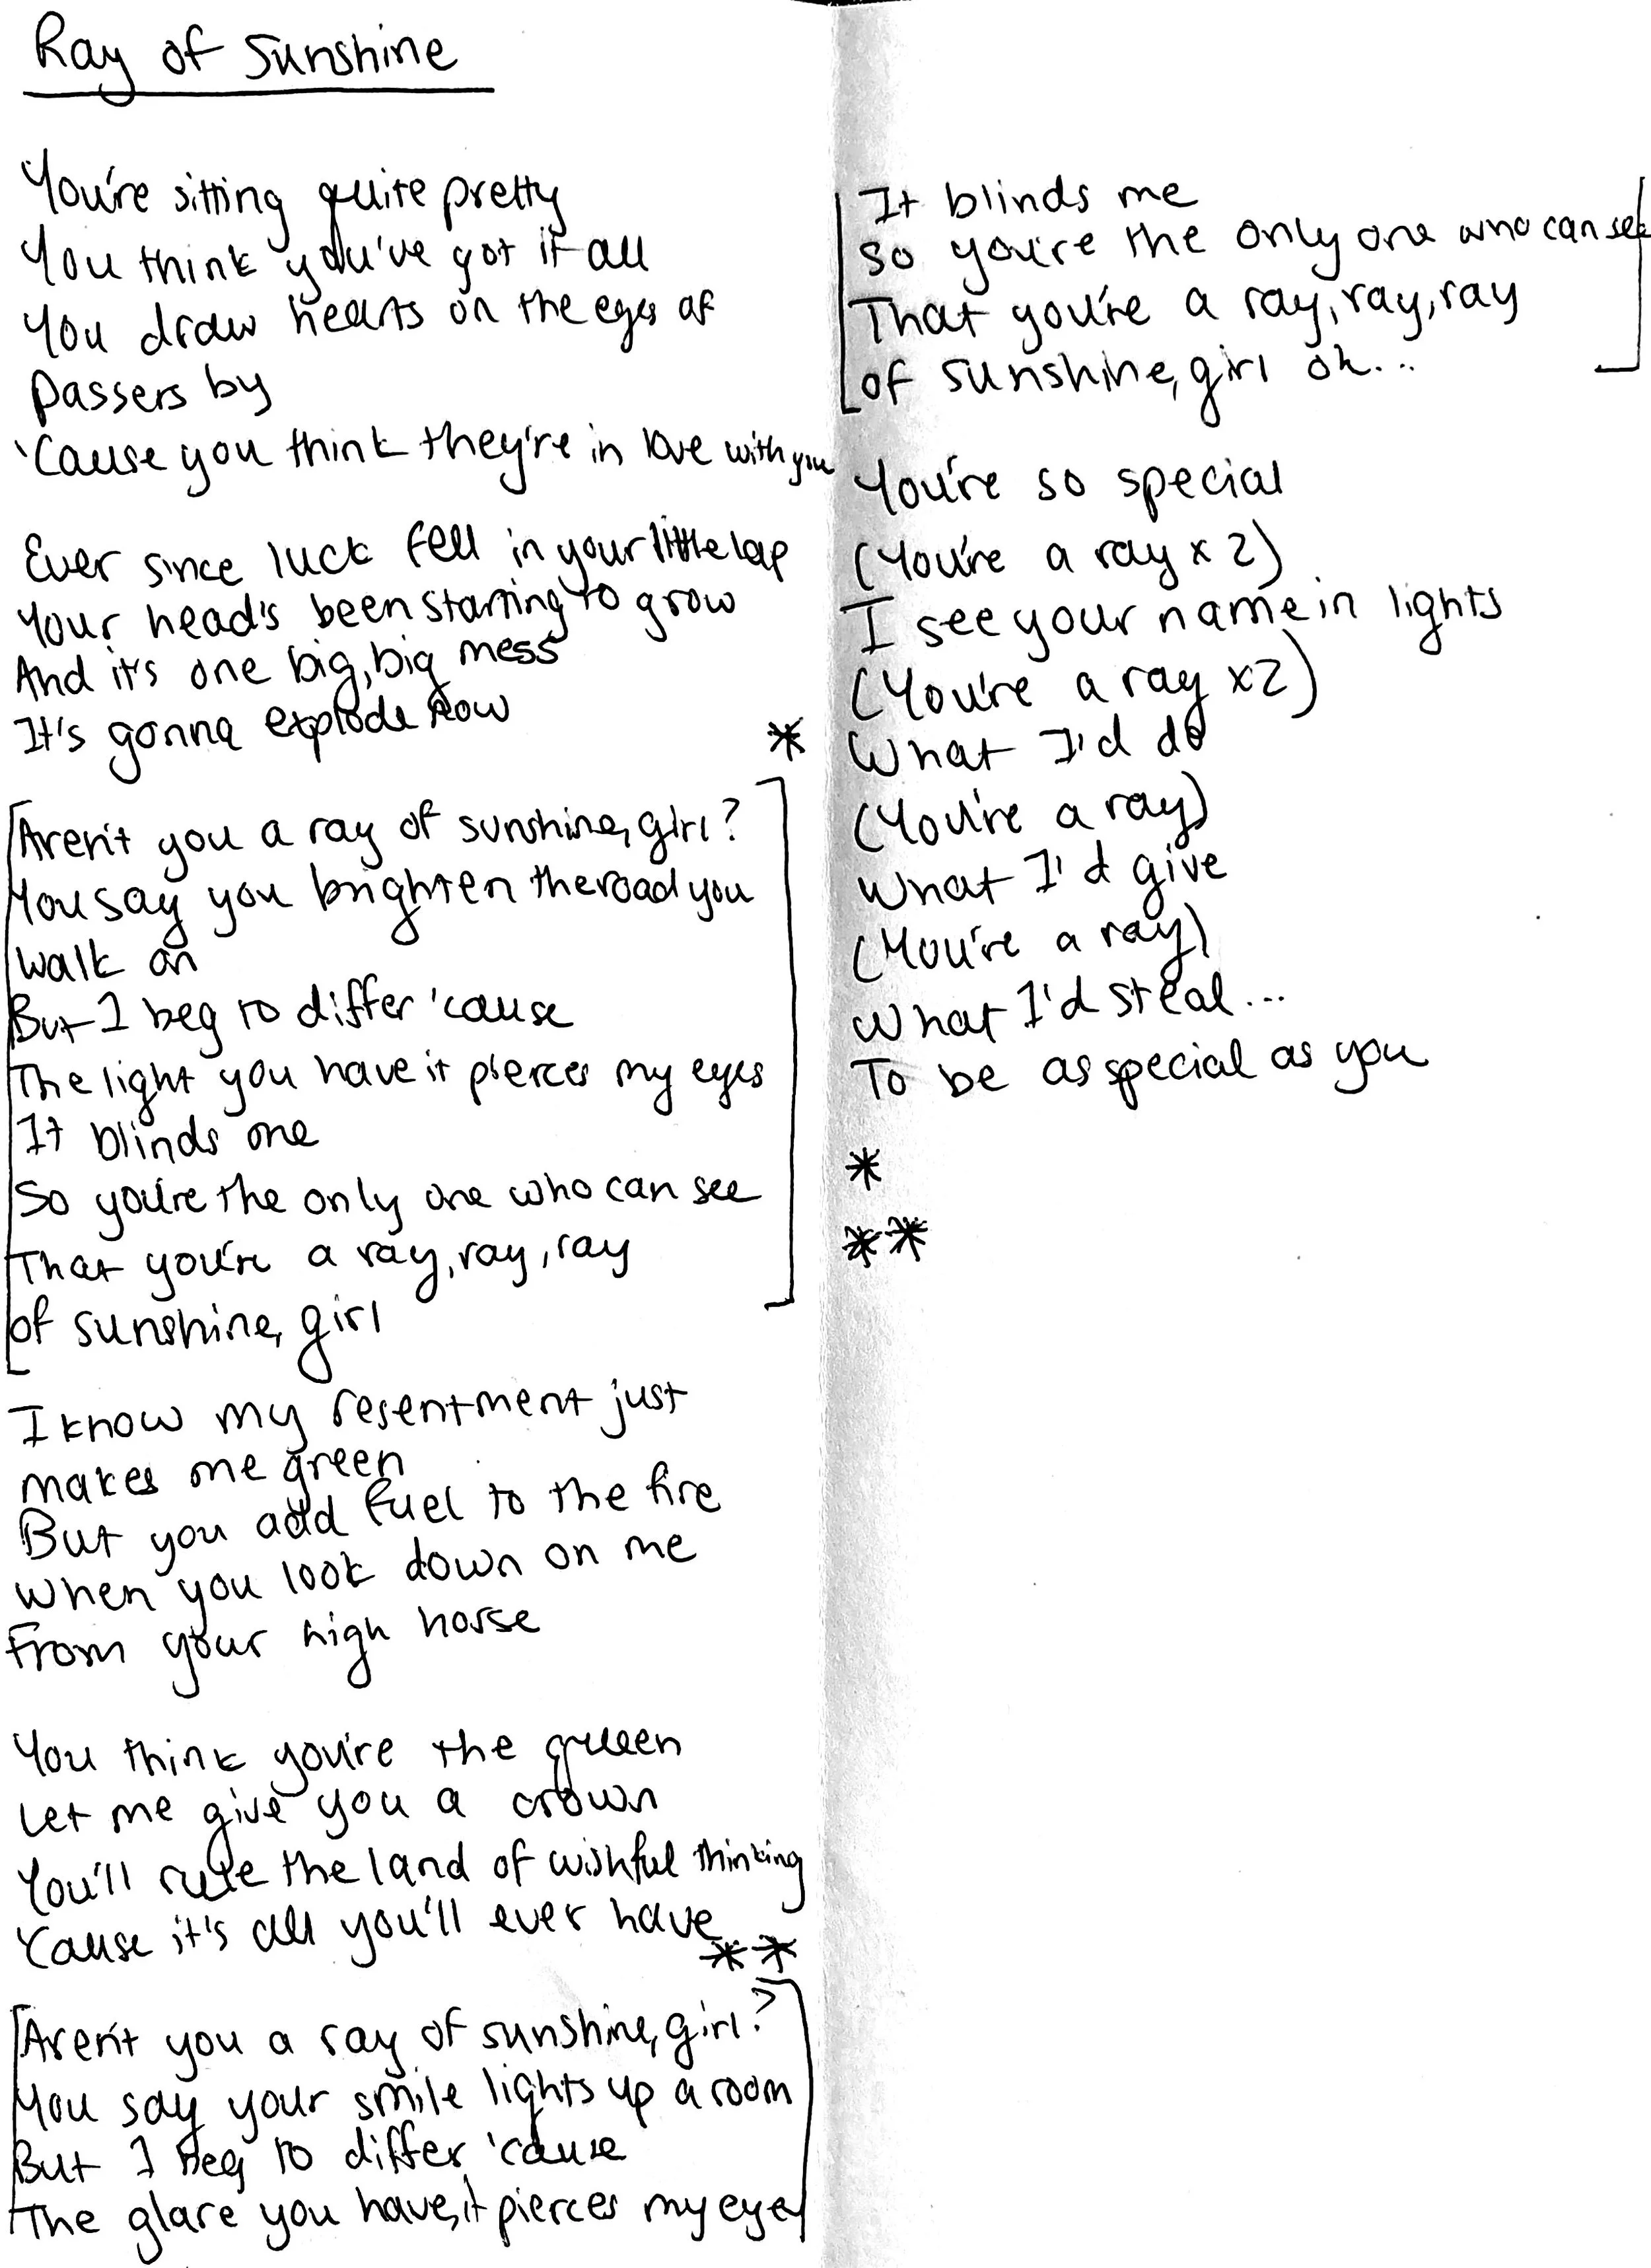 Ray of Sunshine
You're sitting quite pretty
You think you've got it all
You draw hearts on the eyes of
passers by
'Cause you think they're in love with you
Ever since luck fell in your little lap
Your head's been starting to grow
And it's one big, big mess
It's gonna explode now
*
[Aren't you a ray of sunshine, girl?
You say you brighten the road you
walk on
But I beg to differ 'cause
The light you have it pierces my eyes
It blinds me
So you're the only one who can see
That you're a ray, ray, ray
of sunshine, girl]
I know my resentment just
makes me green
But you add fuel to the fire
When you look down on me
From your high horse
You think you're the queen
Let me give you a crown
You'll rule the land of wishful thinking
'Cause it's all you'll ever have
**
[Aren't you a ray of sunshine, girl?
You say your smile lights up a room
But I beg to differ 'cause
The glare you have, it pierces my eyes
It blinds me
So you're the only one who can see
That you're a ray, ray, ray
of sunshine, girl oh...]
You're so special
(You're a ray x 2)
I see your name in lights
(You're a ray x2)
What I'd do
(You're a ray)
What I'd give
(You're a ray)
What I'd steal...
To be as special as you
*
**